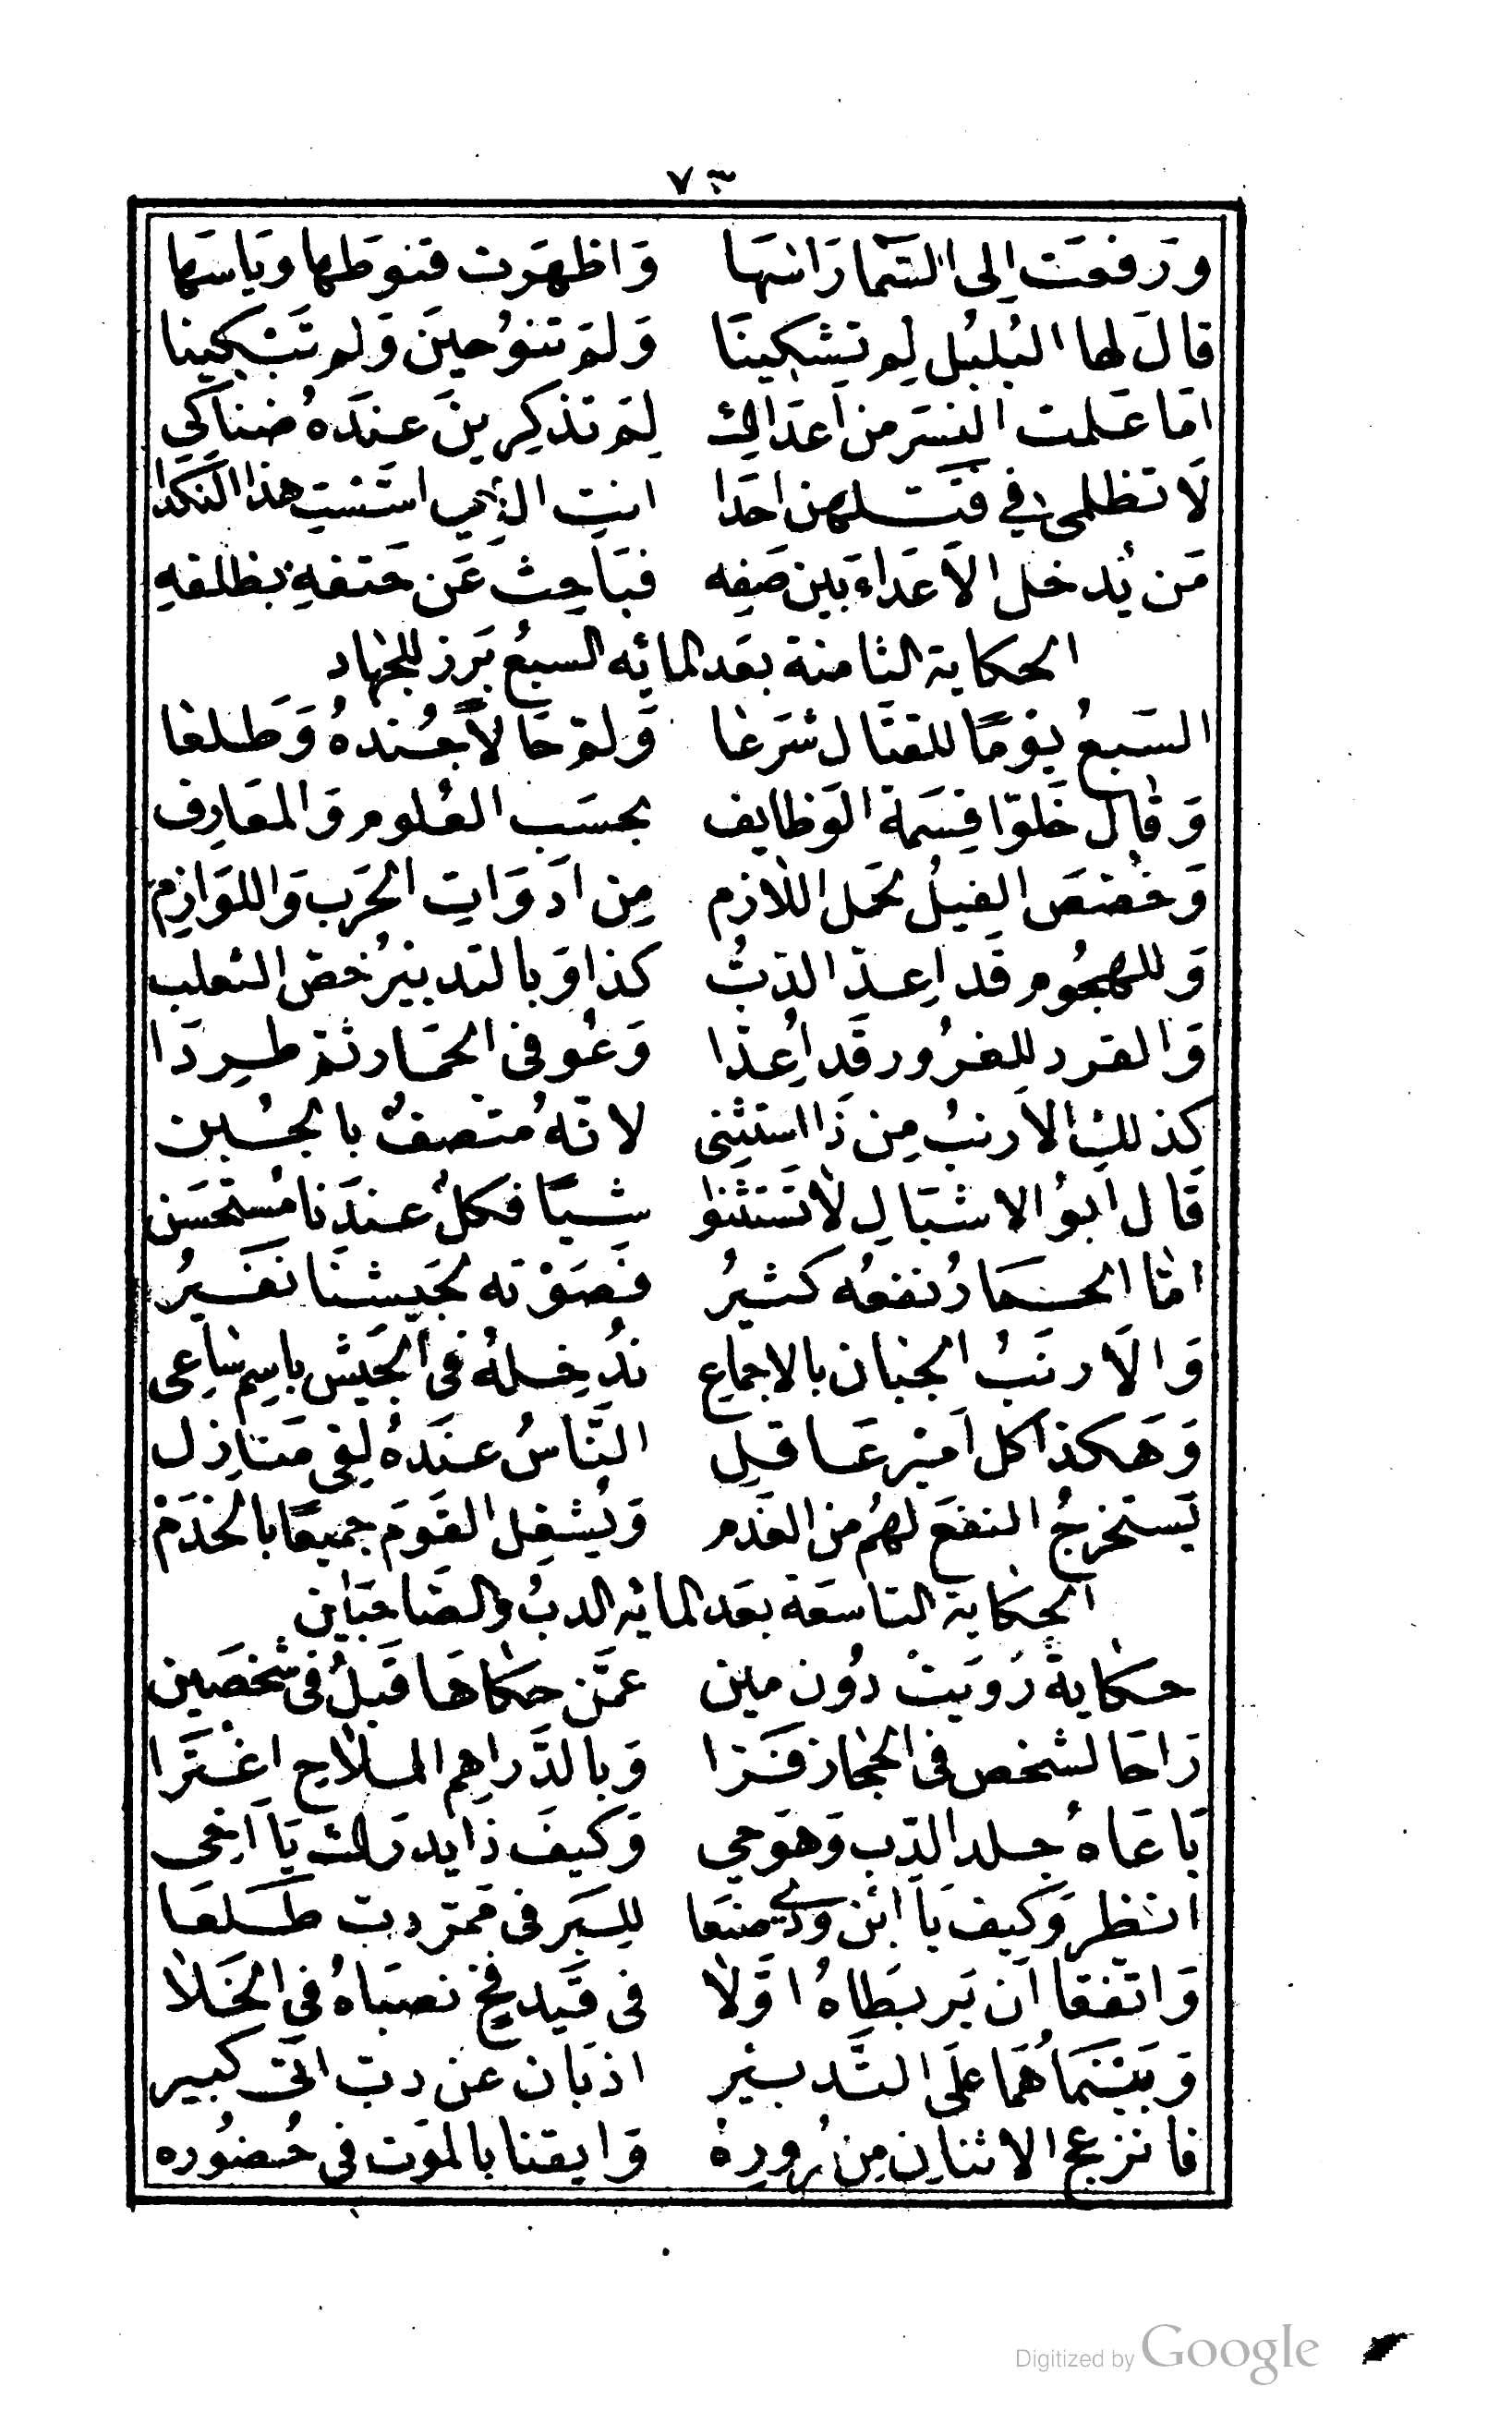 ٧٣
وَرَفعَت اِلى السَّما رَاسَهَا وَاظهَرَت قنوطها ويَاسَها
قالَ لها البُلبُل لِم تشكينَا وَلمَ تنوُحينَ وَلم تَبكينا
امَا عَلمت النِسَر من اَعدَائِك لِمَ تذكِرينَ عندَهُ ضناكي
لَا تظلمى في قتلهن احَدا انتِ الذي اسَّستِ هذا النكدا
مَن يُدخل الاَعدَاء بَين صَفِه فبَاحِث عَن حَتفهِ بظلفهِ
الحكاية الثامنة بعَد المائه السبعُ بَرز للجهاد
السَبعُ يَومًا للقتَال شرَعا وَلمَّ حَالاً جُندهُ وَطلعَا
وَقال خَلوّا قِسمَة الوَظايف بحسَب العُلوم وَالمعَارِف
وَخُصّصَ الفيلُ بحَمل اللازم مِن ادَوَاتِ الحَرب وَاللوَازِم
وَللهجُوم قَد اعِدّ الدبُّ كذا وَبالتدبيرُ خصّ الثعلب
وَالقرد للِغرُور قَد اُعِدّا وَعُوفى الحمَار ثمّ طِردَا
كذلكِ الاَرنبُ مِن ذَا استثِنى لانّهُ مُتّصفٌ بالجُبن
قَال ابوُ الاشبَالِ لاَ تَستثنوا شيئًا فكلٌ عندَنا مُستحسَن
امّا الحمَارُ نفعُه كثيرُ فصَوْته لجَيشنَا نفَيرُ
وَالاَرنَبُ الجبَان بالاجماعِ ندُخِلهُ فى الجَيش باسِم سَاعِى
وَهَكذا كل اَمير عَاقلِ النَّاسُ عندَهُ لِفى مَنازِل
يَستخرجُ النفعَ لهُم من القدَم وَيُشغِل القَومَ جميعًا بالخدَمْ
الحِكاية التاسعَة بعَد المائه الدبُ والصَاحبَاين
حكايةٌ رُويَتْ دوُن مين عمَّن حكاهَا قَبلُ فى شخصَين
رَاحَا لشخص فى الحجَاز فَرّا وَبالدَّراهِم الملاحِ اغترَا
بَاعَاهُ جلد الدّب وَهوَ حي وَكيفَ ذا يدرَلك يَا اخِى
انظر وَكيف يَا ابن ودّي صنعَا للِسَير فى ممَرّ دبّ طلعَا
وَاتّفقا اَن يَربطَاهُ اوّلا فى قَيد فخ نصبَاهُ فى الخَلا
وَبَينمَا هُمَا علَى التدبير اذبَان عن دبّ اتى كبير
فانزعج الاثنانِ مِن رُورِهْ وَايقنا بالموَت فى حُضوُره
Digitized by Google